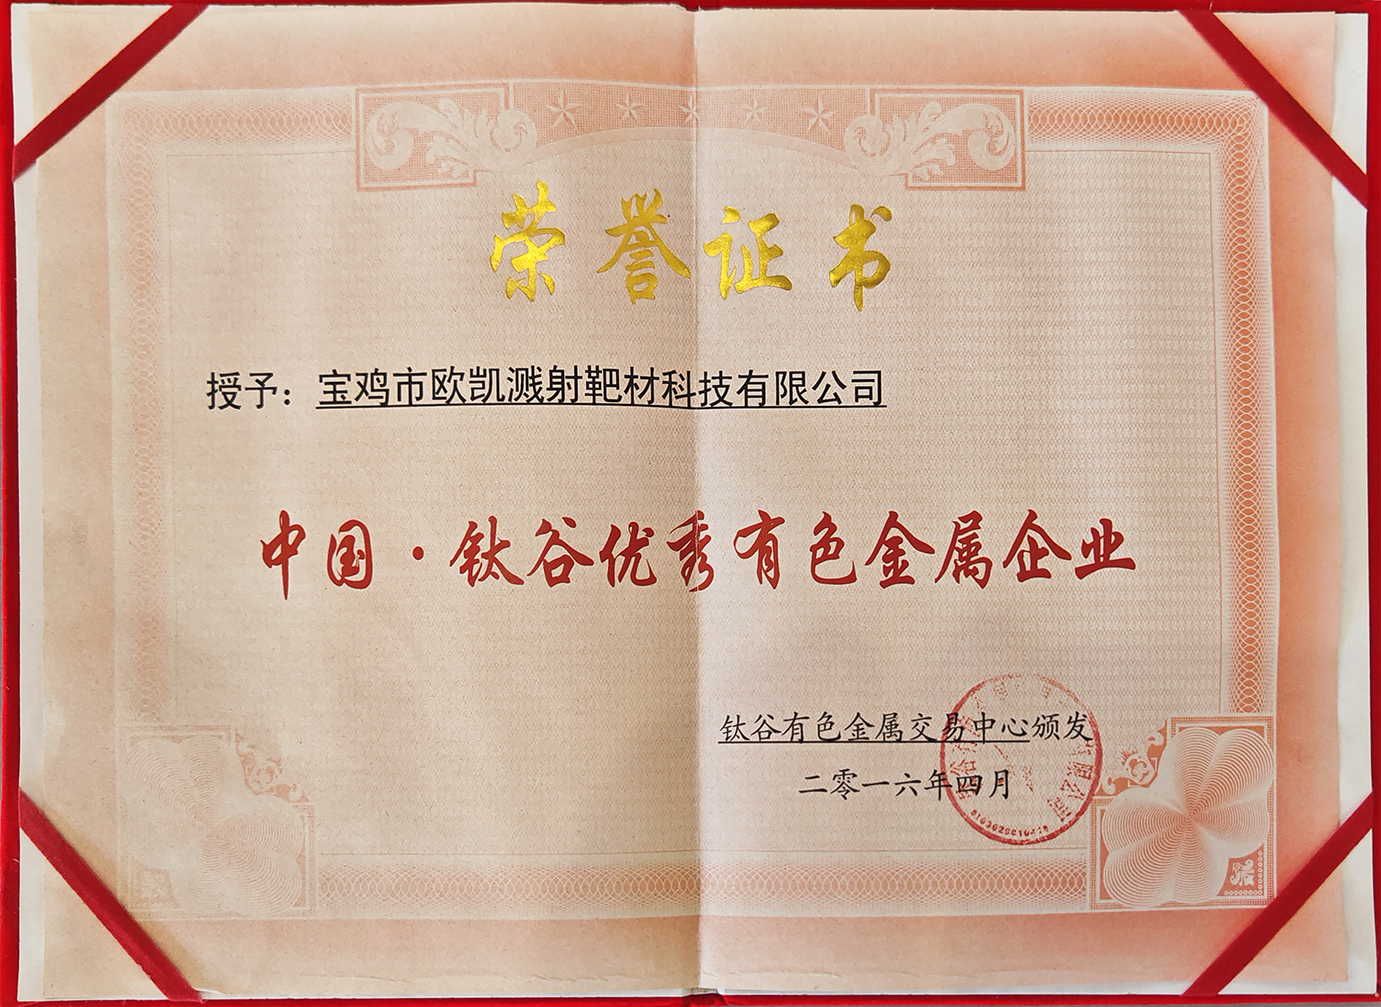 荣誉证书
授予：宝鸡市欧凯溅射靶材科技有限公司
中国·钛谷优秀有色金属企业
钛谷有色金属交易中心颁发
二零一六年四月